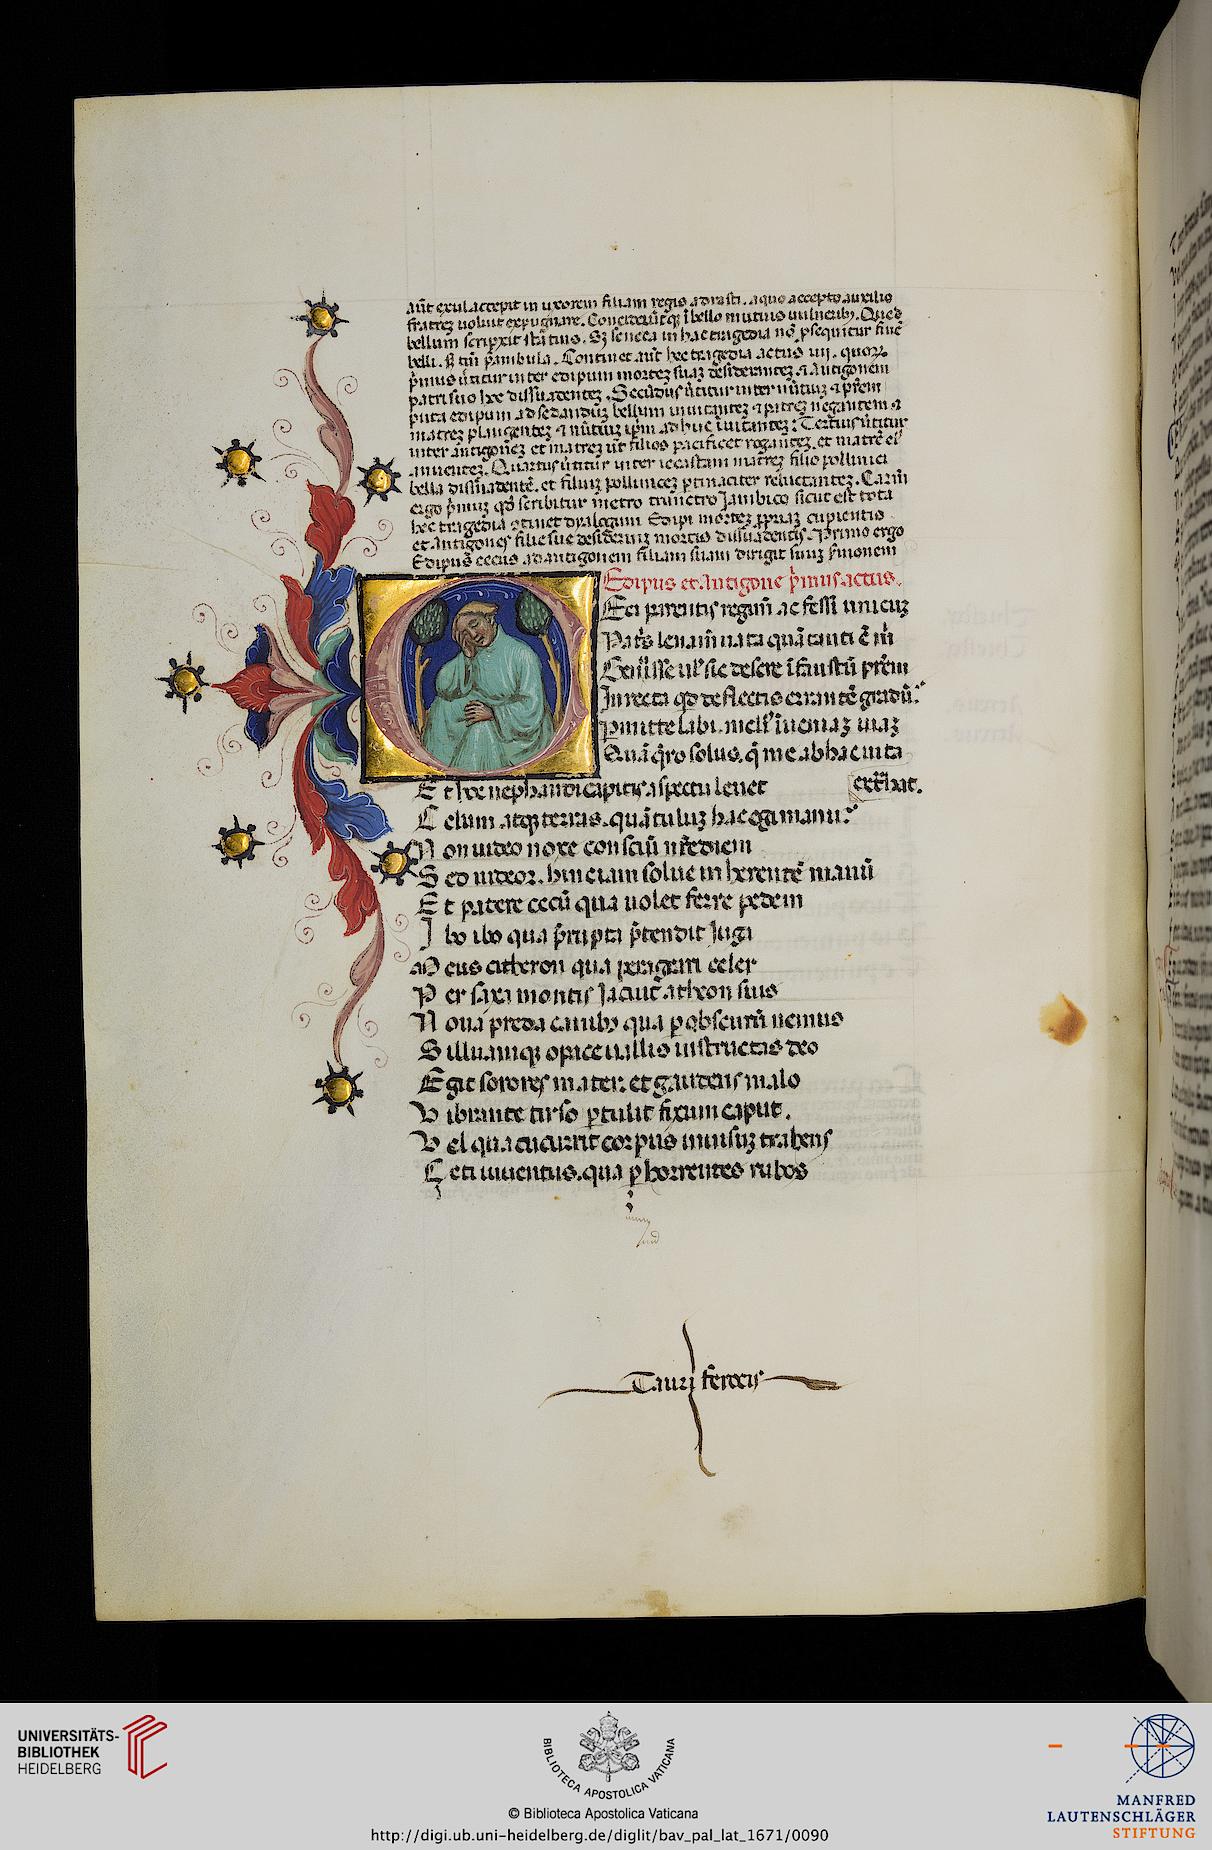 aūt exul accepit in uxorem filiam regis adrasti. a quo accepto auxilio
fratrez uoluit expugnare. Conciderūtqꝫ ī bello mutuis uulneribꝫ. Quod
bellum scripxit statius. Sꝫ seneca in hac tragedia nō ꝓsequitur finē
belli. sꝫ tm̄ p̄ambula. Continet aūt hec tragedia actus iiij. quoꝝ
p̄mus ūtitur inter edipum mortez suaz desiderantez. ⁊ antigonem
patri suo hoc dissuadentez. Secūdus ūtitur inter nūtiuz ⁊ p̄rem
puta edipum ad sedanduz bellum inuitantez ⁊ patrez negantem ⁊
matrez plangentez ⁊ nūtiuz ip̄m adhuc īuitantez: Tertius ūtitur
inter antigonez et matrez ut filios pacificet rogantez. et matrē ei
annuentez. Quartus ūtitur inter iocastam matrez filio pollinici
bella dissuadentē. et filiuz pollinicez ꝑtinaciter reluctantez. Carm̄
ergo p̄muz qd̄ scribitur metro trimetro Jambico sicut est tota
hec tragedia ↄtinet dyalogum Edipi mortez ꝓpriaz cupientis
et Antigones filie sue desideriuz mortis dissuadentis. Primo ergo
Edipus cecus ad antigonem filiam suam dirigit suuz s̄monem
Edipus et Antigone p̄mus actus.
Ceci parentis regim̄ ac fessi unicuz
Patris leuam̄ nata quā tanti ē m̄
Genuisse uł sic desere īfaustū p̄rem
In recta qd̄ deflectis errantē gradū.
Pmitte labi. melī īueniaz uiaz
Quā q̄ro solus. q̄ me ab hac uita
extrhat.
Et hoc nephandi capitis aspectu leuet
Celum atqꝫ terras. quātuluz hac egi manu.
Non uideo noxe consciū nr̄e diem
Sed uideor. hinc iam solue inherentē manū
Et patere cecū qua uolet ferre pedem
Ibo ibo qua p̄rupta p̄tendit Jugi
Meus citheron qua peragrati celer
Per saxa montis Jacuit atheon suis
Noua preda canibꝫ qua ꝑ obscurū nemus
Silluamqꝫ opace uallis instructas deo
Egit sorores mater. et gaudens malo
Vibrante tirso ꝑtulit fixum caput.
Vel qua cucurrit corpus inuisuz trahens
Ceti iuuentus. qua ꝑ horrentes rubos
Tauri ferocis
UNIVERSITÄTS-
BIBLIOTHEK
HEIDELBERG
BIBLIOTECA APOSTOLICA VATICANA
© Biblioteca Apostolica Vaticana
http://digi.ub.uni-heidelberg.de/diglit/bav_pal_lat_1671/0090
MANFRED
LAUTENSCHLÄGER
STIFTUNG